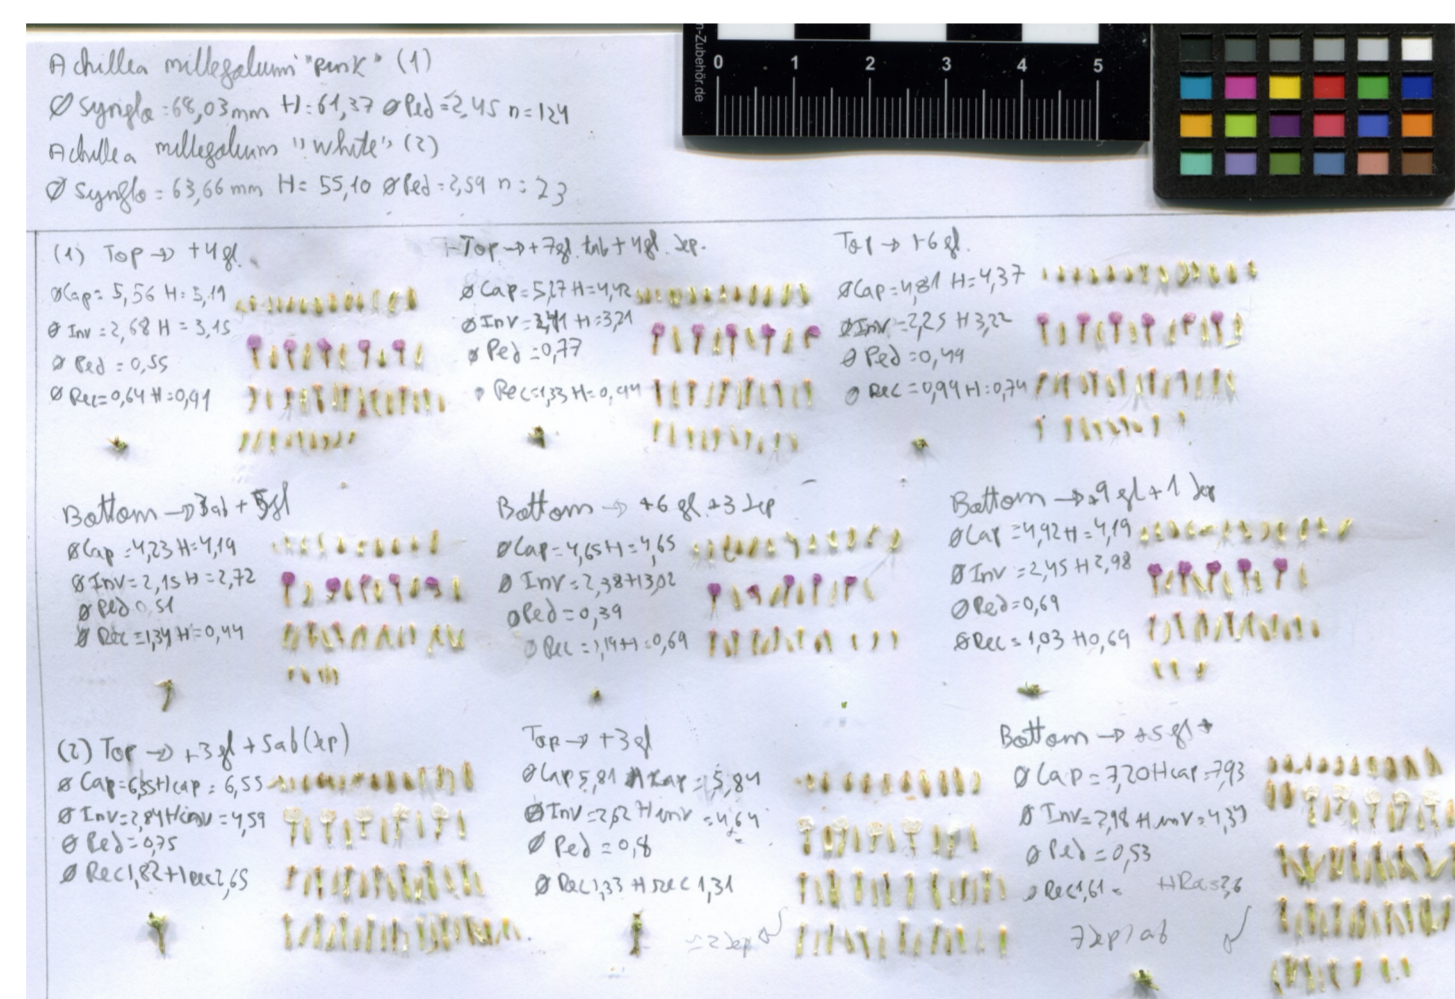 Achillea millefolium "pink" (1)
Ø Synflo = 68,03 mm H = 61,37 Ø Ped = 2,45 n = 124
Achillea millefolium "white" (2)
Ø Synflo = 63,66 mm H = 55,10 Ø Ped = 2,59 n = 23
n-Zubehör.de
0 1 2 3 4 5
(1) Top → +4gl.
ØCap = 5,56 H = 5,19
Ø Inv = 2,68 H = 3,15
Ø Ped = 0,55
Ø Rec = 0,64 H = 0,91
Top → +7gl. + 4gl.
Ø Cap = 5,27 H = 4,42
Ø Inv = H = 3,21
Ø Ped = 0,77
Rec = 1,33 H =
Top → +6 gl.
Ø Cap = 4,81 H = 4,37
Ø Inv = 2,25 H 3,22
Ø Ped = 0,49
Ø Rec = 0,94 H = 0,74
Bottom → 3ab +
Ø Cap = 4,23 H = 4,19
Ø Inv = 2,15 H = 2,72
Ø Ped 0,51
Ø Rec = 1,34 H = 0,44
Bottom → +6 gl +3
Ø Cap = 4,65 H = 4,65
Ø Inv = 2,38 H
Ø Ped = 0,39
Ø Rec = 1,14 H = 0,69
Bottom → +9 gl + 1
Ø Cap = 4,92 H = 4,19
Ø Inv = 2,45 H 2,98
Ø Ped = 0,69
Ø Rec = 1,03 H 0,69
(2) Top → +3 gl + 5ab
Ø Cap = H cap = 6,55
Ø Inv = 2,84 H inv = 4,59
Ø Ped = 0,75
Ø Rec 1,82 H rec 2,65
Top → +3 gl
Ø Cap 5,81 H cap = 5,84
Ø Inv = 2,62 H inv = 4,64
Ø Ped = 0,8
Ø Rec 1,33 H rec 1,31
Bottom → +5 gl +
Ø Cap = 7,20 H cap = 7,93
Ø Inv = H inv = 4,37
Ø Ped = 0,53
Rec 1,61 =